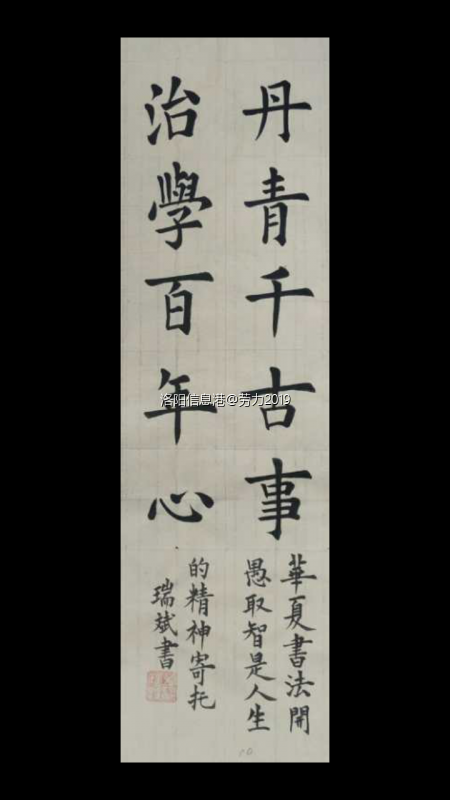 丹青千古事
治學百年心
華夏書法開
愚取智是人生
的精神寄托
瑞斌書
洛阳信息港@劳力2019